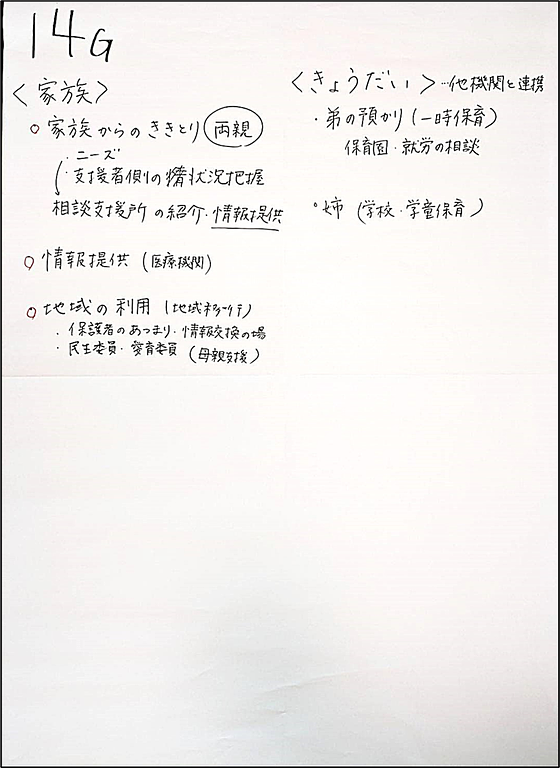 14G
〈家族〉
○ 家族からのききとり 両親
・ニーズ
・支援者側の 状況把握
相談支援所の紹介・情報提供
○ 情報提供 (医療機関)
○ 地域の利用 (地域
・保護者のあつまり・情報交換の場
・民生委員・愛育委員 (母親支援)
〈きょうだい〉…他機関と連携
・弟の預かり (一時保育)
保育園・就労の相談
・姉 (学校・学童保育)